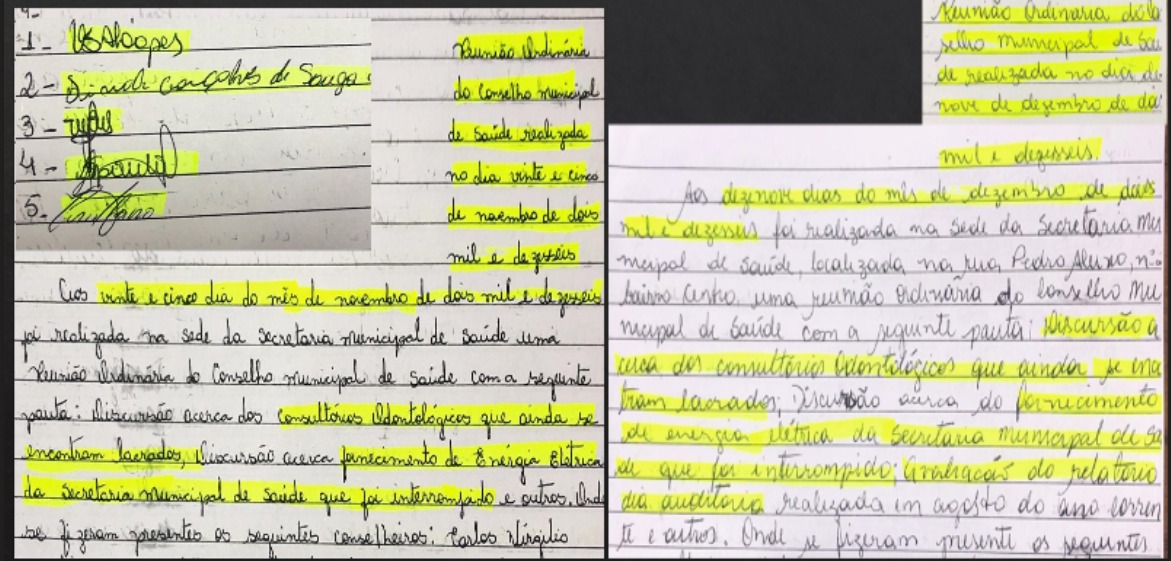 1-
2- Gonçalves de Souza
3-
4-
5-
Reunião Ordinária
do Conselho Municipal
de Saúde realizada
no dia vinte e cinco
de novembro de dois
mil e dezesseis
Aos vinte e cinco dia do mês de novembro de dois mil e dezesseis
foi realizada na sede da Secretaria Municipal de Saúde uma
Reunião Ordinária do Conselho Municipal de Saúde com a seguinte
pauta: Discursão acerca dos consultórios Odontológicos que ainda se
encontram lacrados, Discursão acerca fornecimento de Energia Elétrica
da Secretaria Municipal de Saúde que foi interrompido e outros. Onde
se fizeram presentes os seguintes conselheiros: Carlos Virgilio
Reunião Ordinaria do
selho municipal de Saú
de realizada no dia de
nove de dezembro de do
mil e dezesseis.
Aos dezenove dias do mês de dezembro de dois
mil e dezesseis foi realizada na Sede da Secretaria Mu
nicipal de Saúde, localizada na rua, Pedro Aleixo, nº
bairro Centro, uma reunião ordinária do Conselho Mu
nicipal de Saúde com a seguinte pauta: Discursão a
cerca dos consultórios Odontológicos que ainda se enco
tram lacrados; Discursão acerca do fornecimento
de energia elétrica da Secretaria Municipal de Sa
de que foi interrompido; Avaliação do relatório
dia auditoria realizada em agosto do ano corren
te e outros. Onde se fizeram presente os seguintes